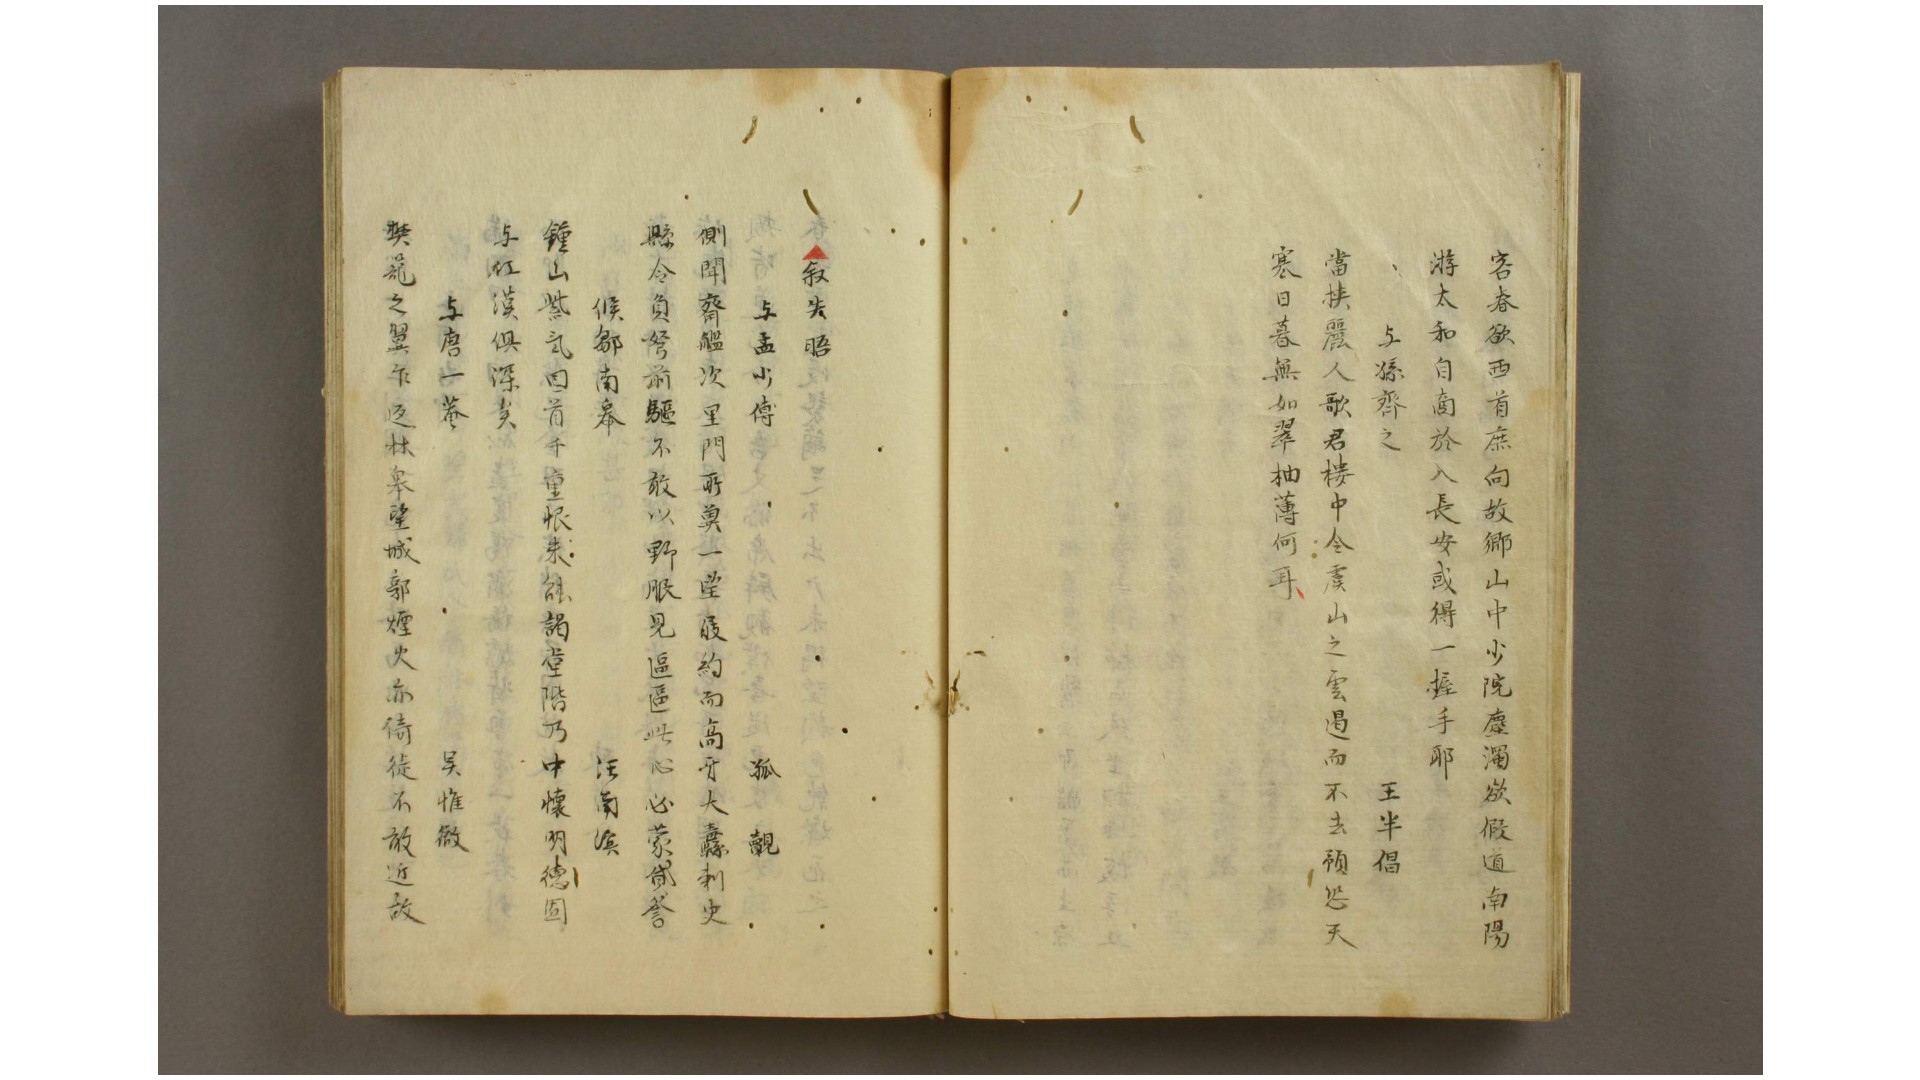 客春欲西首庶向故鄉山中少院塵濁欲假道南陽
游太和自商於入長安或得一握手耶
与孫齊之 王半倡
當樓麗人歌君樓中令虞山之雲遏而不去顧咫天
寒日暮無如翠柚薄何耳
叙失晤
与孟少傅 狐覯
側聞齋艦次里門所奠一望屐約而高牙大纛刺史
縣令負弩前驅不敢以野服見區區此心必蒙貸詧
候鄒南皋 汪南溟
鍾山紫氣回首千重恨未能謁堂階乃中懷明德固
与江漢俱深矣
与唐一菴 吴惟徵
樊籠之翼乍返林皋望城郭煙火亦倚徙不敢近故